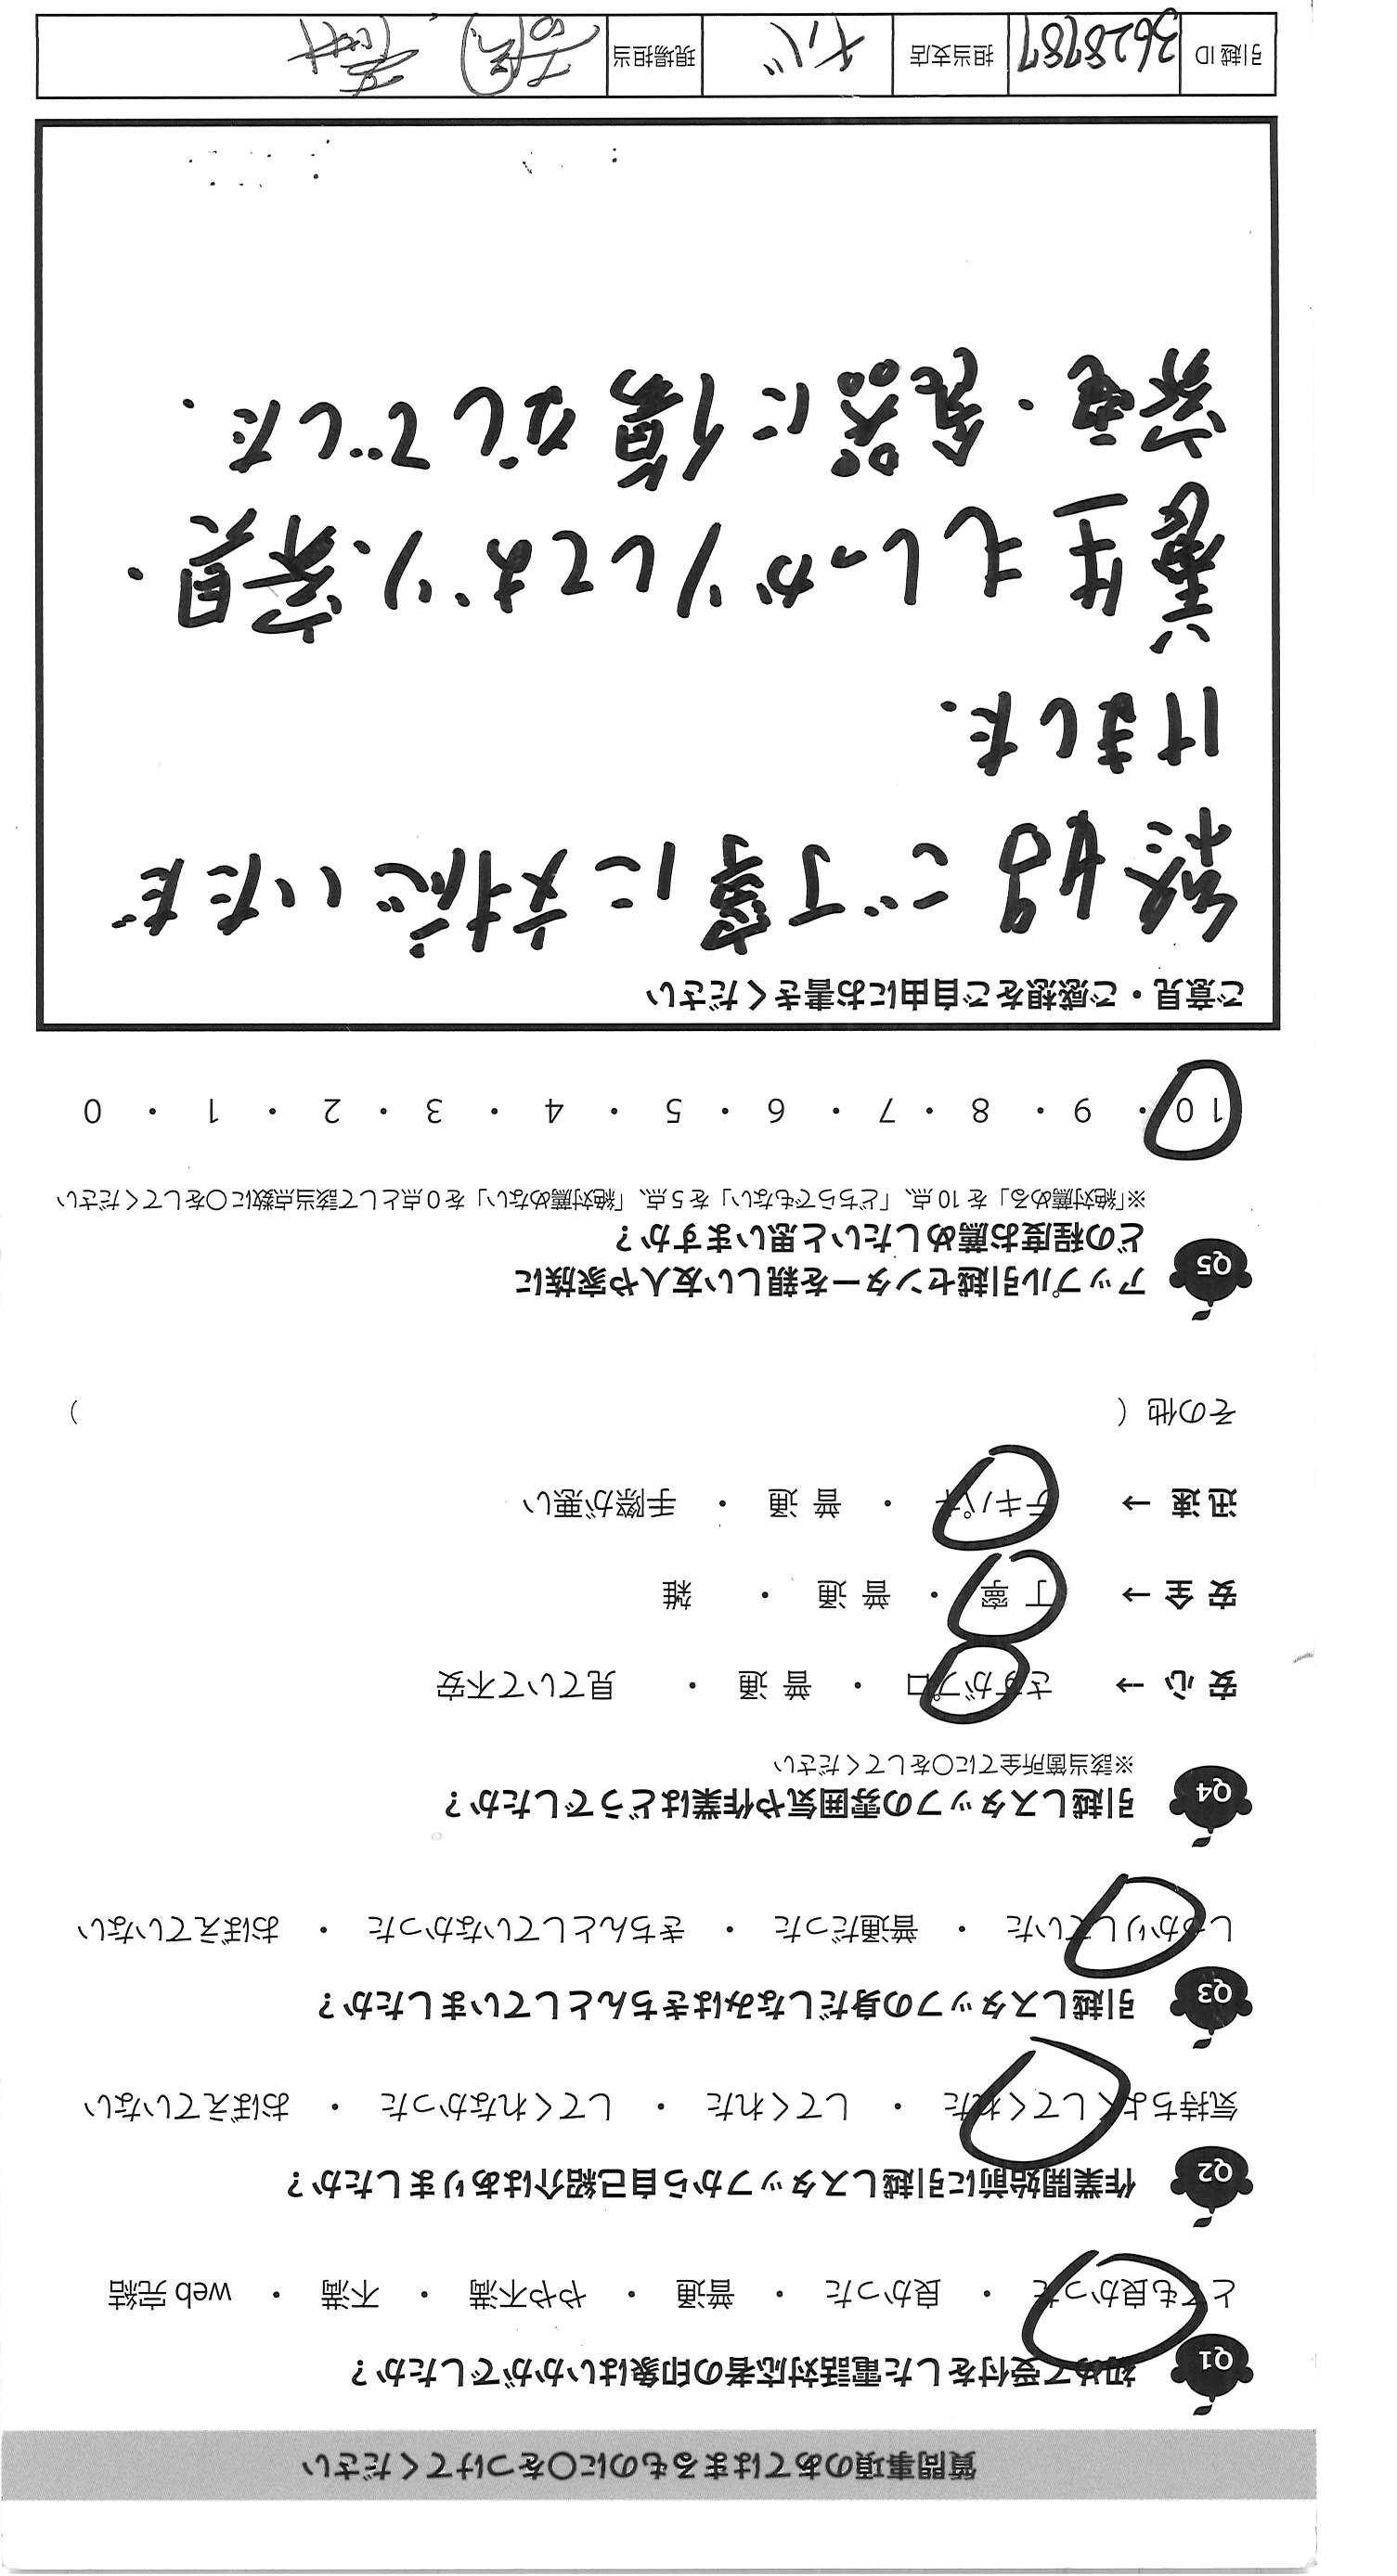 質問事項のあてはまるものに○をつけてください
Q1 初めて受付をした電話対応者の印象はいかがでしたか？
とても良かった ・ 良かった ・ 普通 ・ やや不満 ・ 不満 ・ web 完結
Q2 作業開始前に引越しスタッフから自己紹介はありましたか？
気持ちよくしてくれた ・ してくれた ・ してくれなかった ・ おぼえていない
Q3 引越しスタッフの身だしなみはきちんとしていましたか？
しっかりしていた ・ 普通だった ・ きちんとしていなかった ・ おぼえていない
Q4 引越しスタッフの雰囲気や作業はどうでしたか？
※該当箇所全てに○をしてください
安 心 → さすがプロ ・ 普 通 ・ 見ていて不安
安 全 → 丁 寧 ・ 普 通 ・ 雑
迅 速 → テキパキ ・ 普 通 ・ 手際が悪い
その他（ ）
Q5 アップル引越センターを親しい友人や家族に
どの程度お薦めしたいと思いますか？
※「絶対薦める」を 10 点、「どちらでもない」を 5 点、「絶対薦めない」を 0 点として該当点数に○をしてください
10 ・ 9 ・ 8 ・ 7 ・ 6 ・ 5 ・ 4 ・ 3 ・ 2 ・ 1 ・ 0
ご意見・ご感想をご自由にお書きください
終始ご丁寧に対応いただ
けました．
養生もしっかりしており、家具・
家電・食器に傷なしでした．
引越 ID 3628787 担当支店 チバ 現場担当